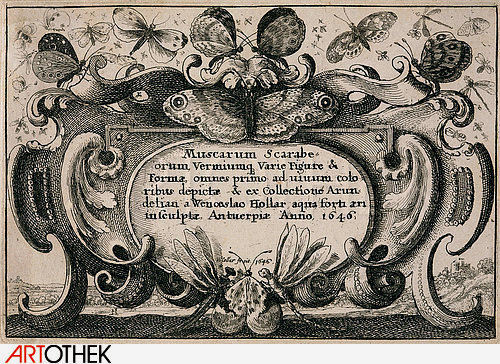 Muscarum Scarabe-
orum, Vermiumq Varie Figure &
Formæ, omnes primo ad uiuum colo
ribus depictæ & ex Collectione Arun
delian a Wenceslao Hollar aqua forti æri
insculptæ. Antuerpiæ Anno, 1646.
fecit 1646
ARTOTHEK